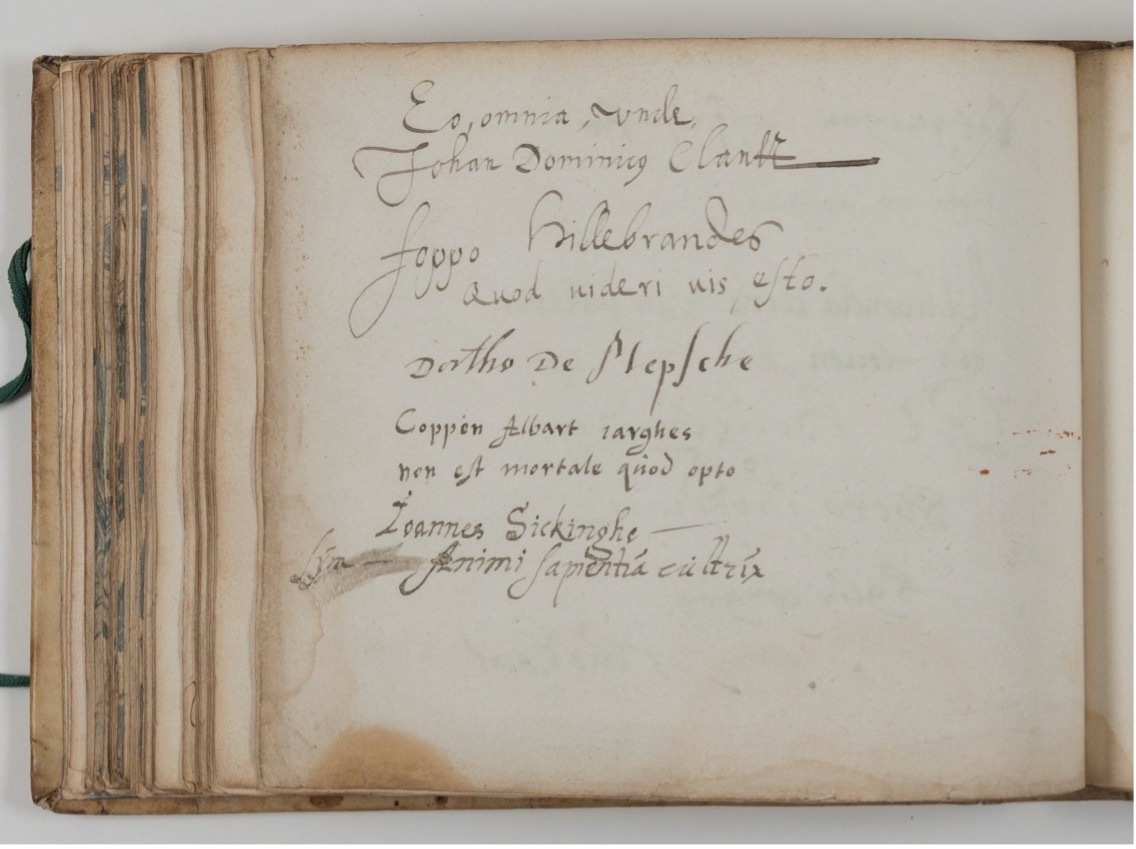 Eo, omnia, vnde,
Johan Dominicus Clantt
foppo Hillebrandes
Quod uideri uis esto.
Dortho De Slepsche
Coppen Albart iarghes
non est mortale quod opto
Ioannes Sickinghe
Animi sapientia cultrix